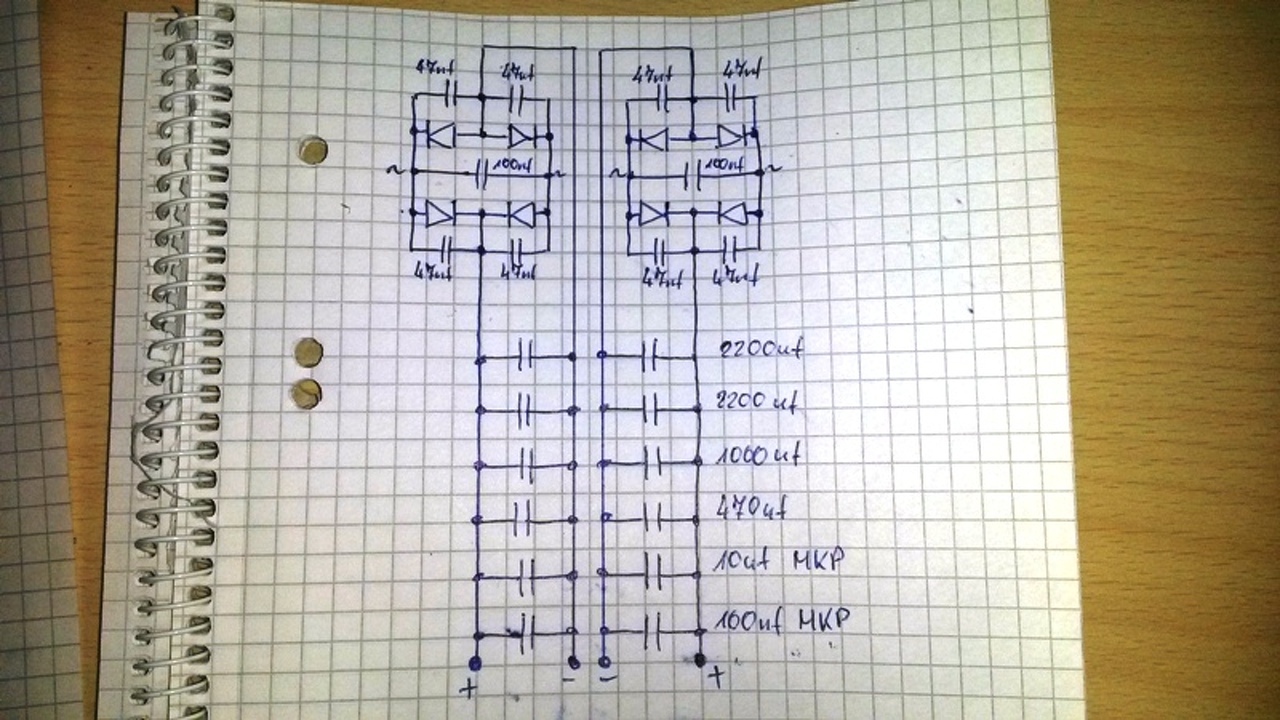 47nf 47nf 47nf 47nf
~ 100nf ~ ~ 100nf ~
47nf 47nf 47nf 47nf
2200uf
2200uf
1000uf
470uf
10uf MKP
100nf MKP
+ - - +